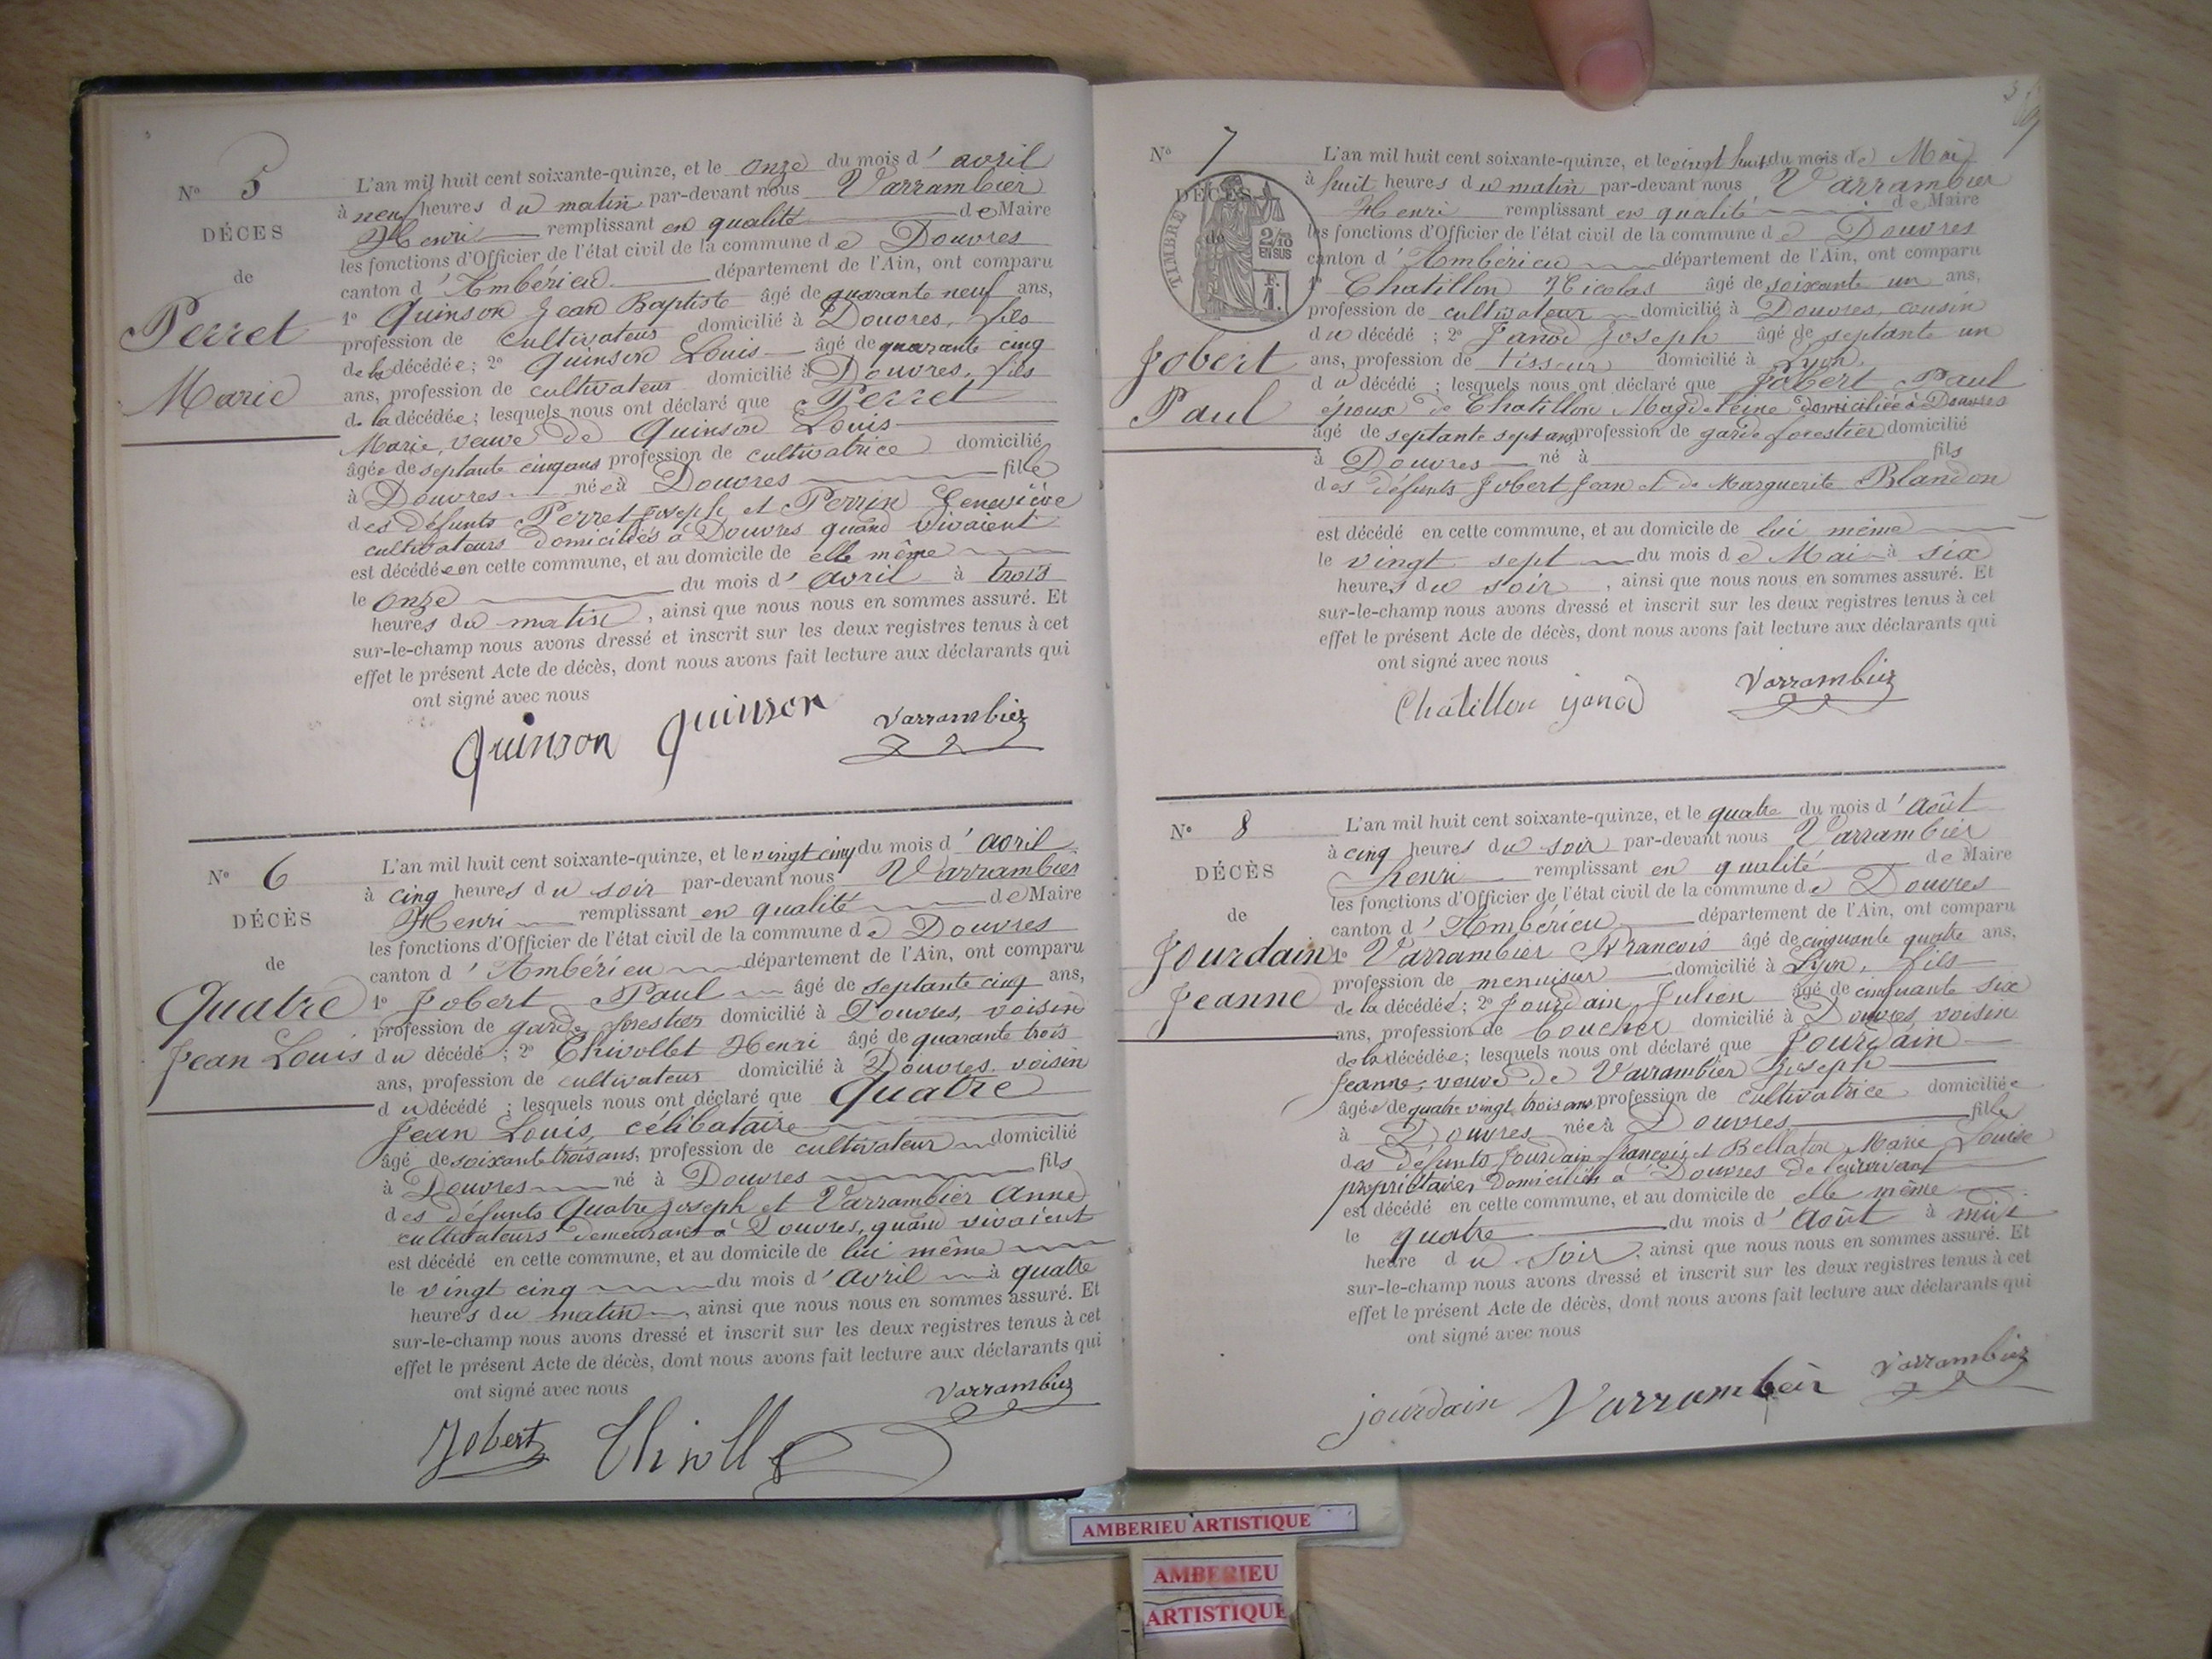 N° 5
DÉCES
de
Perret
Marie
L'an mil huit cent soixante-quinze, et le onze du mois d' avril
à neuf heures du matin par-devant nous Varrambier
Henri remplissant en qualité de Maire
les fonctions d'Officier de l'état civil de la commune de Douvres
canton d'Ambérieu département de l'Ain, ont comparu
1° Quinson Jean Baptiste âgé de quarante neuf ans,
profession de cultivateur domicilié à Douvres, fils
de la décédée; 2° Quinson Louis âgé de quarante cinq
ans, profession de cultivateur domicilié à Douvres, fils
de la décédée; lesquels nous ont déclaré que Perret
Marie, veuve de Quinson Louis
âgée de septante cinq ans profession de cultivatrice domicilié
à Douvres née à Douvres fille
des défunts Perret Joseph et Perrin Geneviève
cultivateurs domiciliés à Douvres quand vivaient
est décédée en cette commune, et au domicile de elle même
le onze du mois d' avril à trois
heures du matin, ainsi que nous nous en sommes assuré. Et
sur-le-champ nous avons dressé et inscrit sur les deux registres tenus à cet
effet le présent Acte de décès, dont nous avons fait lecture aux déclarants qui
ont signé avec nous
quinson quinson Varrambier
N° 6
DÉCÈS
de
Quatre
Jean Louis
L'an mil huit cent soixante-quinze, et le vingt cinq du mois d' avril
à cinq heures du soir par-devant nous Varrambier
Henri remplissant en qualité de Maire
les fonctions d'Officier de l'état civil de la commune de Douvres
canton d'Ambérieu département de l'Ain, ont comparu
1° Jobert Paul âgé de septante cinq ans,
profession de garde forestier domicilié à Douvres, voisin
du décédé; 2° Chivollet Henri âgé de quarante trois
ans, profession de cultivateur domicilié à Douvres voisin
du décédé; lesquels nous ont déclaré que Quatre
Jean Louis, célibataire
âgé de soixante trois ans, profession de cultivateur domicilié
à Douvres né à Douvres fils
des défunts Quatre Joseph et Varrambier Anne
cultivateurs demeurant à Douvres, quand vivaient
est décédé en cette commune, et au domicile de lui même
le vingt cinq du mois d' avril à quatre
heures du matin, ainsi que nous nous en sommes assuré. Et
sur-le-champ nous avons dressé et inscrit sur les deux registres tenus à cet
effet le présent Acte de décès, dont nous avons fait lecture aux déclarants qui
ont signé avec nous
Jobert Varrambier
N° 7
DÉCÈS
de
TIMBRE
2/10
EN SUS
Jobert
Paul
L'an mil huit cent soixante-quinze, et le vingt huit du mois de Mai
à huit heures du matin par-devant nous Varrambier
Henri remplissant en qualité de Maire
les fonctions d'Officier de l'état civil de la commune de Douvres
canton d'Ambérieu département de l'Ain, ont comparu
1° Chatillon Nicolas âgé de soixante un ans,
profession de cultivateur domicilié à Douvres, cousin
du décédé; 2° Janod Joseph âgé de septante un
ans, profession de tisseur domicilié à Lyon,
du décédé; lesquels nous ont déclaré que Jobert Paul
époux de Chatillon Magdeleine domiciliée à Douvres
âgé de septante sept ans profession de garde forestier domicilié
à Douvres né à fils
des défunts Jobert Jean et de Marguerite Blandon
est décédé en cette commune, et au domicile de lui même
le vingt sept du mois de Mai à six
heures du soir, ainsi que nous nous en sommes assuré. Et
sur-le-champ nous avons dressé et inscrit sur les deux registres tenus à cet
effet le présent Acte de décès, dont nous avons fait lecture aux déclarants qui
ont signé avec nous
Chatillon janod Varrambier
N° 8
DÉCÈS
de
Jourdain
Jeanne
L'an mil huit cent soixante-quinze, et le quatre du mois d' août
à cinq heures du soir par-devant nous Varrambier
Henri remplissant en qualité de Maire
les fonctions d'Officier de l'état civil de la commune de Douvres
canton d'Ambérieu département de l'Ain, ont comparu
1° Varrambier Francois âgé de cinquante quatre ans,
profession de menuisier domicilié à Lyon, fils
de la décédée; 2° Jourdain Julien âgé de cinquante six
ans, profession de boucher domicilié à Douvres, voisin
de la décédée; lesquels nous ont déclaré que Jourdain
Jeanne, veuve de Varrambier Joseph
âgée de quatre vingt trois ans profession de cultivatrice domiciliée
à Douvres née à Douvres fille
des défunts Jourdain françois et Bellaton Marie Louise
propriétaires domiciliés à Douvres de leur vivant
est décédé en cette commune, et au domicile de elle même
le quatre du mois d' août à midi
heure du soir, ainsi que nous nous en sommes assuré. Et
sur-le-champ nous avons dressé et inscrit sur les deux registres tenus à cet
effet le présent Acte de décès, dont nous avons fait lecture aux déclarants qui
ont signé avec nous
jourdain Varrambier Varrambier
AMBERIEU ARTISTIQUE
AMBERIEU
ARTISTIQUE